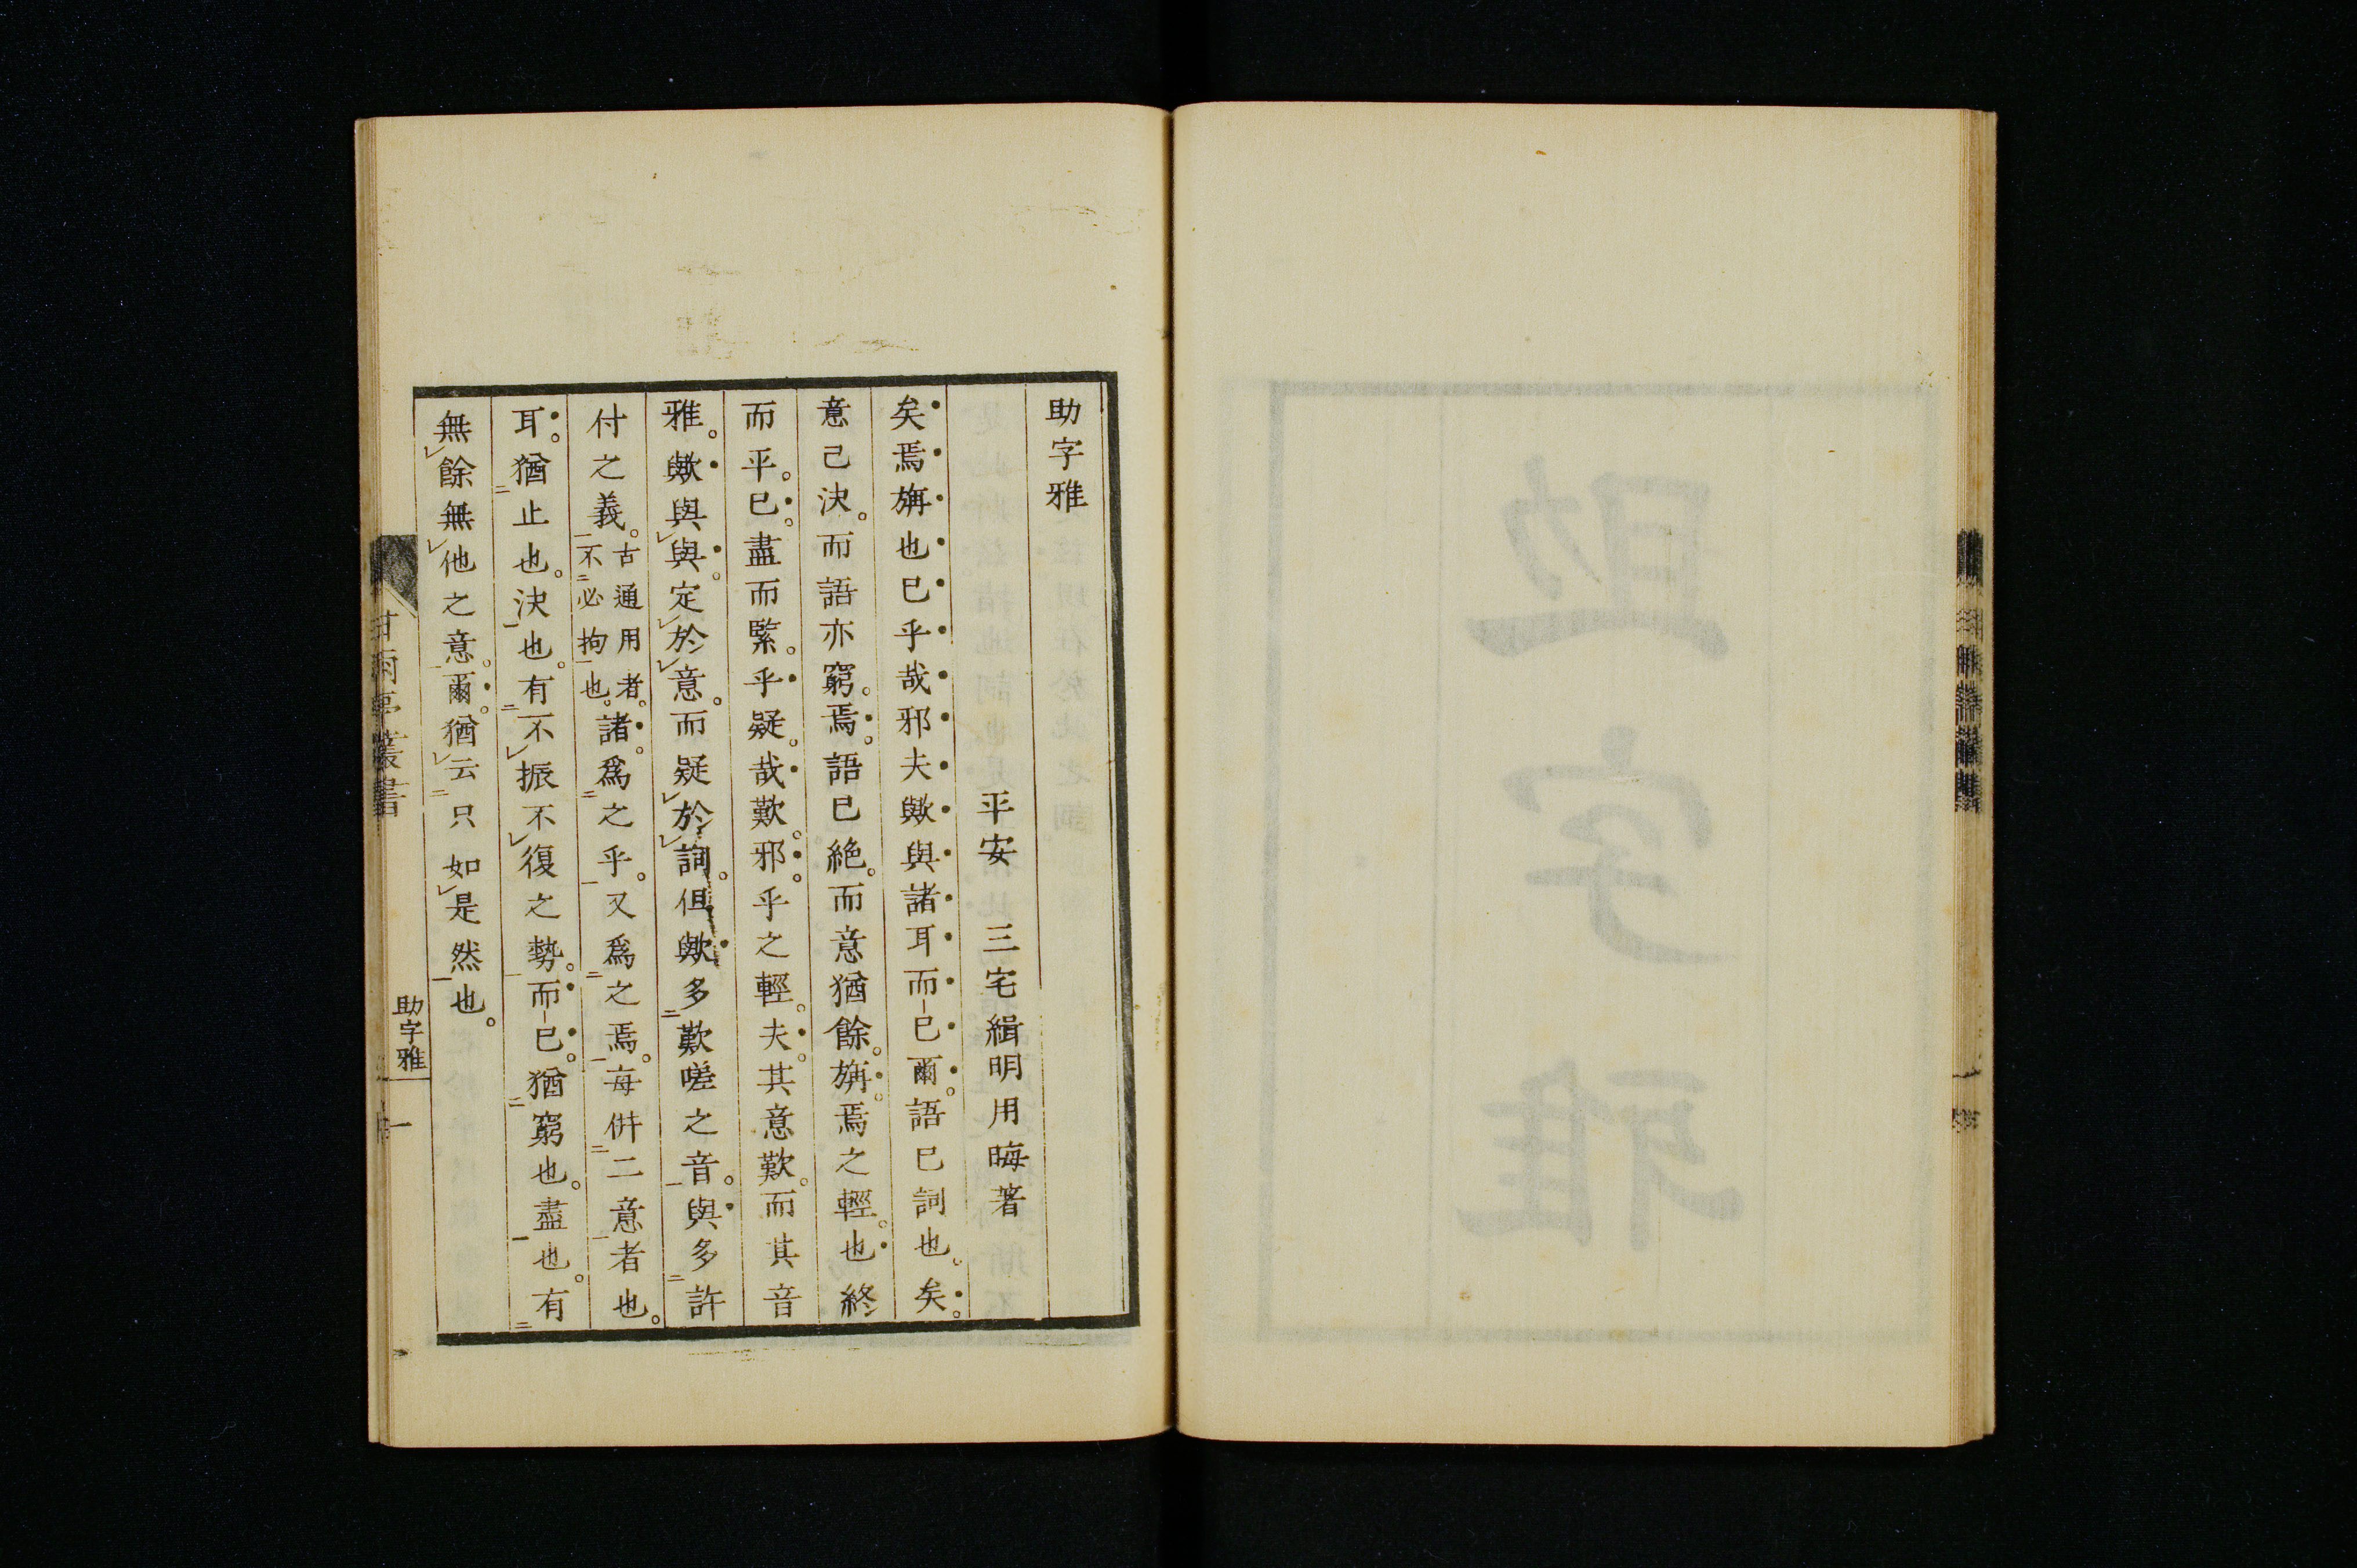 助字雅
平安 三宅緝明用晦著
矣焉旃也已乎哉邪夫歟與諸耳而已爾。語已詞也。矣。
意已決。而語亦窮。焉。語已絶。而意猶餘。旃。焉之輕。也終
而平。已。盡而緊。乎疑。哉歎。邪。乎之輕。夫。其意歎。而其音
雅。歟與與。定於意。而疑於詞。但歟多歎嗟之音。與多許
付之義。古通用者。不必拘也。諸。爲之乎。又爲之焉。每倂二意者也。
耳。猶止也。決也。有不振不復之勢。而已。猶窮也。盡也。有
無餘無他之意。爾。猶云只如是然也。
甘雨亭叢書
助字雅
一
助
字
雅